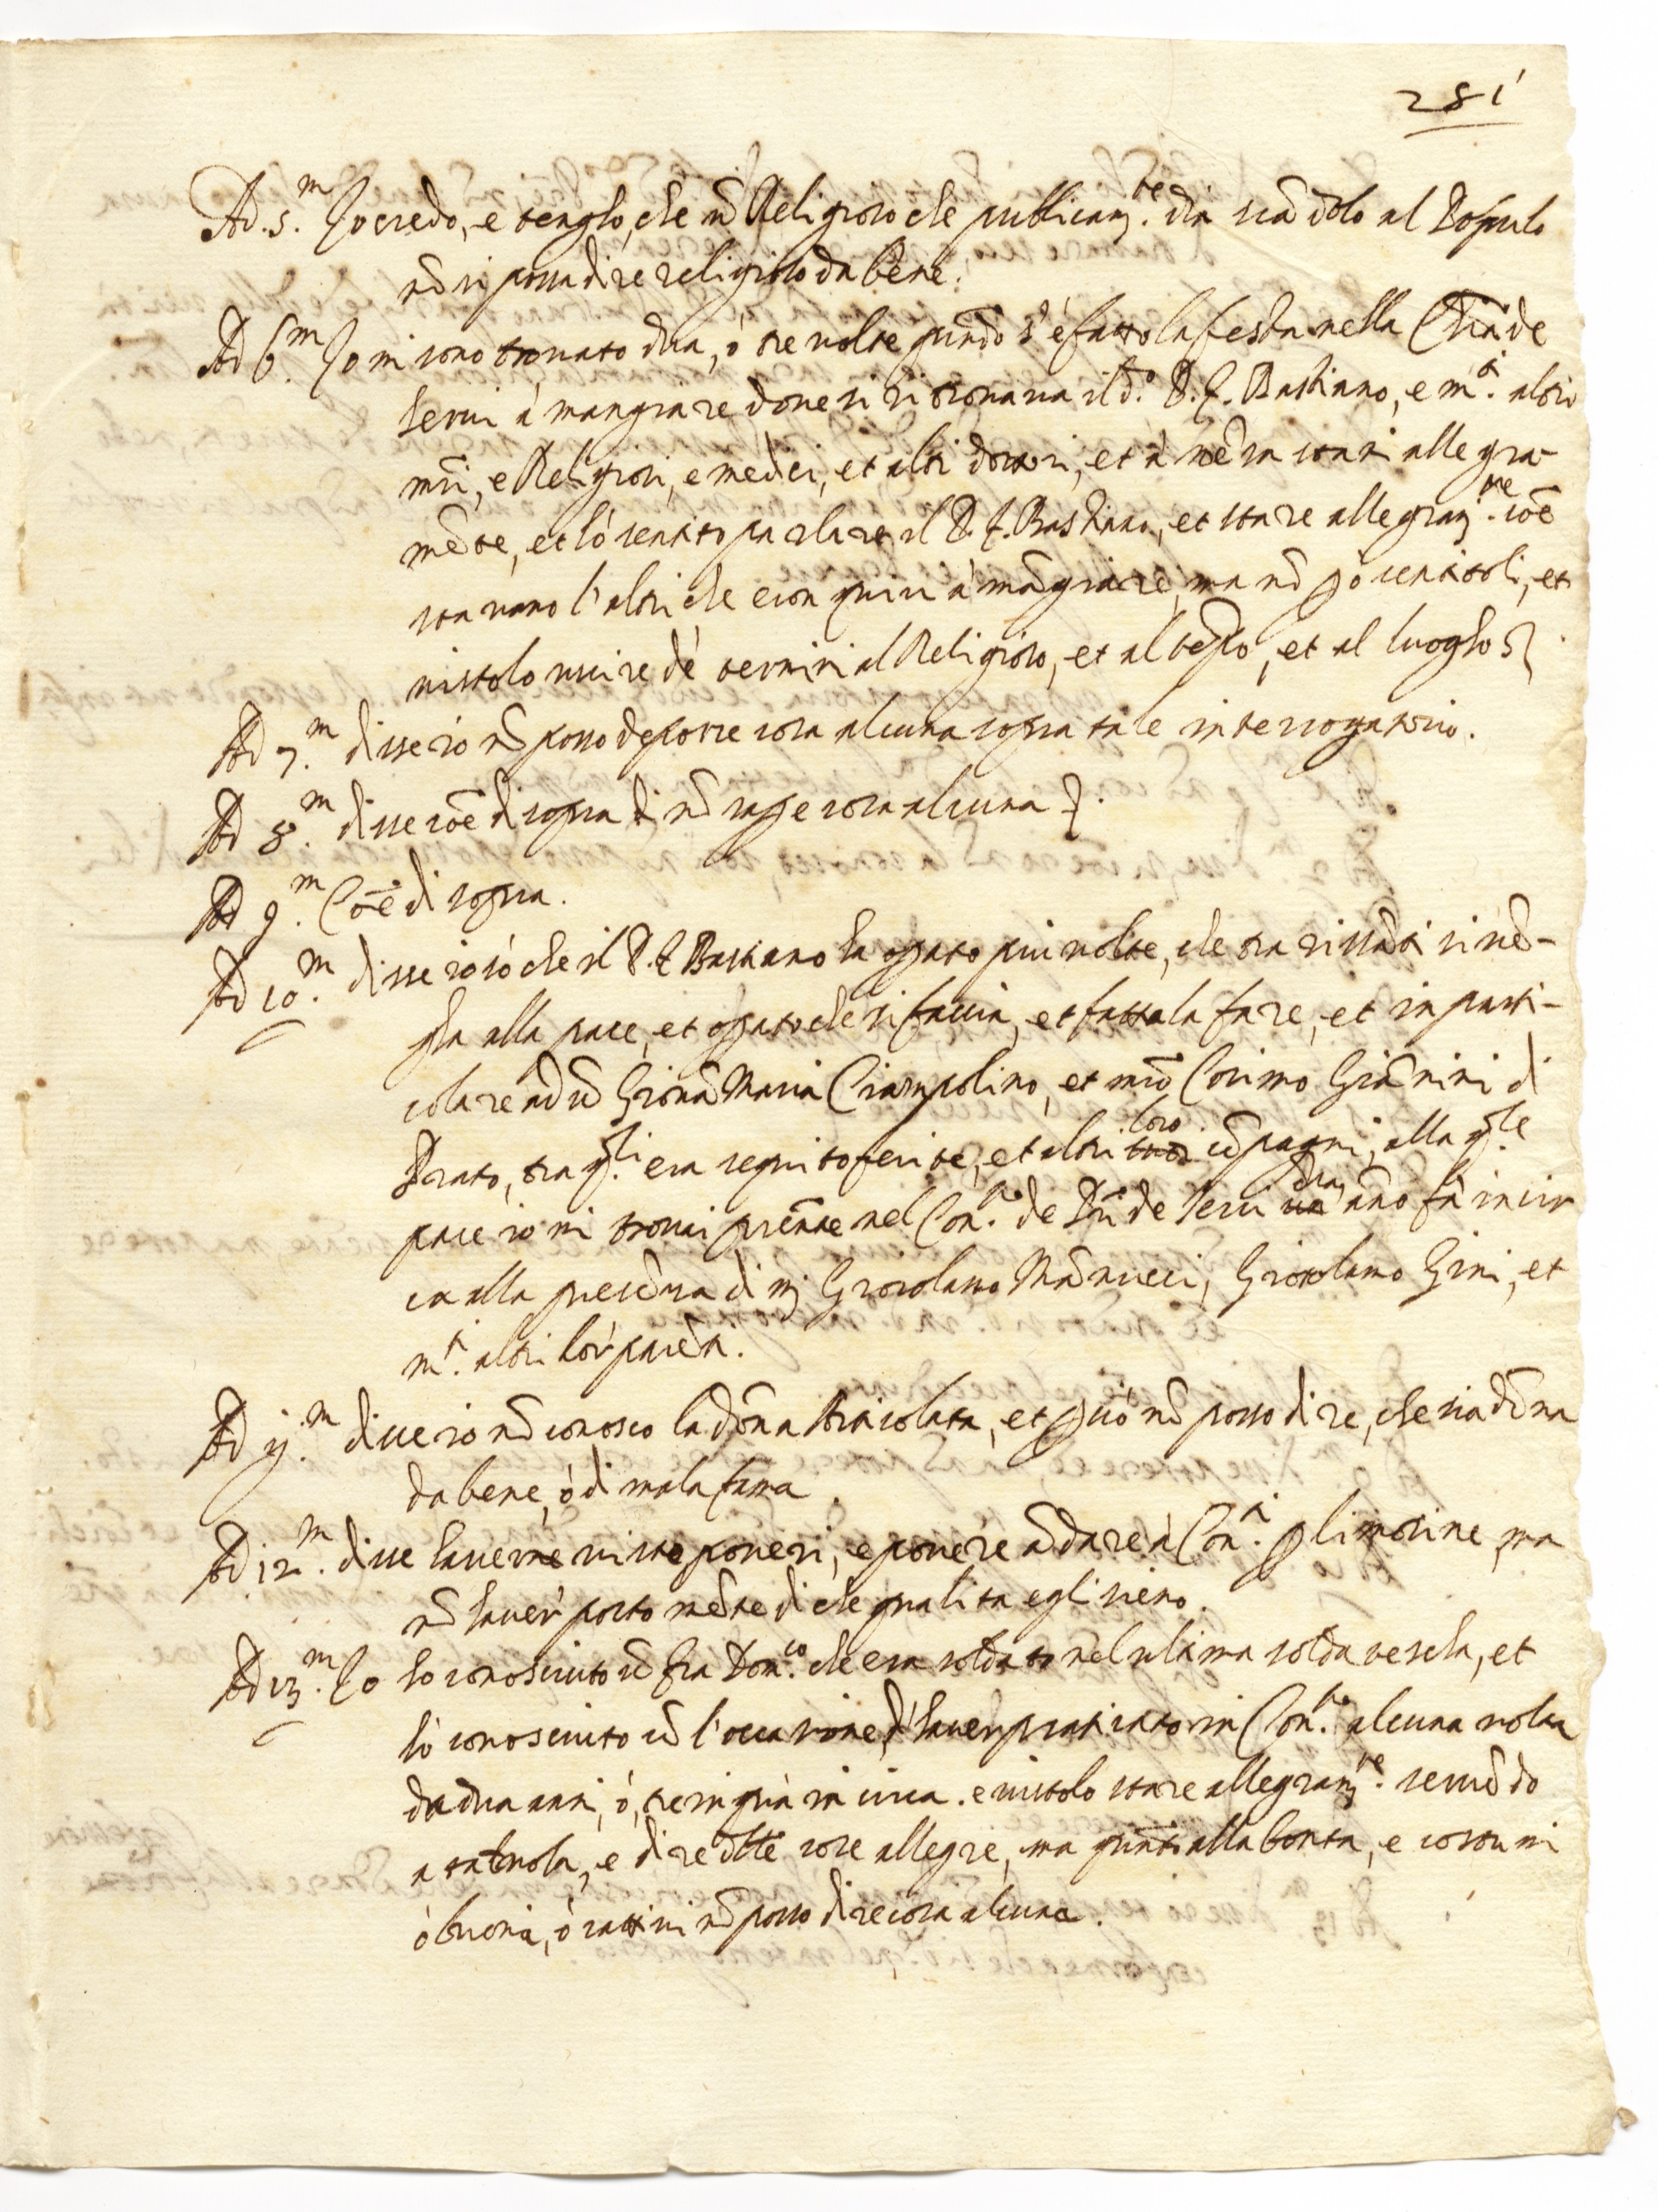 281
Ad 5.m Io credo, e tengho, che ũ Religioso che publicam.te dia scãdolo al Popolo
nõ si possa dire religioso da bene.
Ad 6.m Io mi sono trovato dua, ò tre volte quãdo s'è fatto la festa nella Chiã de
Servi à mangiare dove si ritrovava il d.o P. f. Bastiano, e m.ti altri
mri, e Religiosi, e medici, et altri dottori, et à mẽsa stavi allegra-
mẽte, et l'ò sentito parlare il P. f. Bastiano, et stare allegram.te cõe
stavano l'altri che eron quivi à mãgiare, ma nõ gò sentitoli, et
vistolo uscire de termini al Religioso, et al tẽpo, et al luogho
Ad 7.m disse io nõ posso deporre cosa alcuna sopra tale interrogatorio.
Ad 8.m disse cõe di sopra di nõ sape cosa alcuna
Ad 9.m Cõe di sopra.
Ad 10.m disse io sò che il P. f. Bastiano ha opato più volte, che tra rissãti si vẽ-
gha alla pace, et opato che si faccia, et fattola fare, et in parti-
colare ad ũ Giovã Maria Ciampolino, et mrõ Cosimo Giãnini di
Prato, tra q.li era seguito ferite, et altri loro cõpagni, alla q.le
pace io mi trovai presẽte nel Con.to de Pri de Servi dua ãno fà in cir
ca alla presẽza di m Girolamo Mãnucci, Girolamo Gini, et
m.ti altri lor parẽti.
Ad 11.m disse io nõ conosco la dõna Articolata, et pciò nõ posso dire, che sia dõna
da bene, ò di mala fama.
Ad 12.m disse haverne viste poveri, e povere ãdare à Con.ti p limosine, ma
nõ haver posto mẽte di che qualita egli sieno.
Ad 13.m Io ho conosciuto ũ fra Dom.co che era soldato nel ultima soldatescha, et
l'ò conosciuto cõ l'occasione d'haver praticato in Con.to alcuna volta
da dua anni, ò, tre in quà in circa. e vistolo stare allegram.te senẽdo
a tavola, e dire delle cose allegre, ma quãto alla bonta, e costumi
ò buoni, ò cattivi nõ posso dire cosa alcuna.